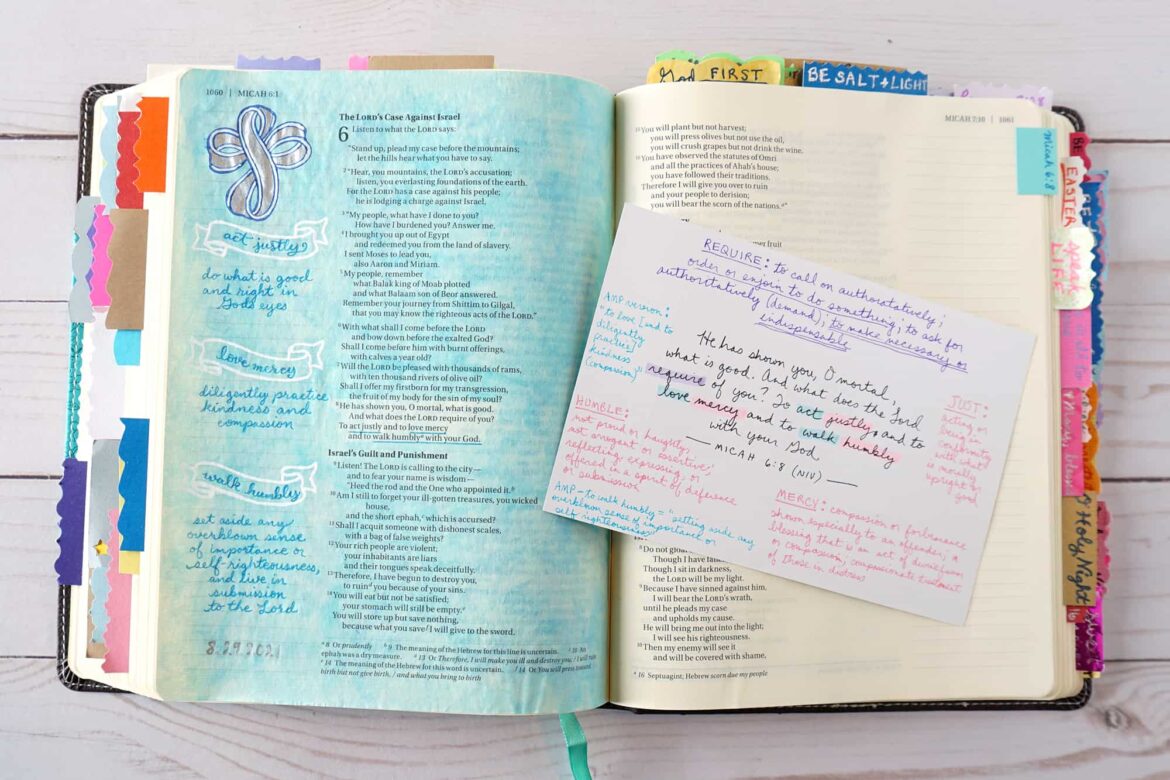 God FIRST
BE SALT + LIGHT
1060 | MICAH 6:1
act justly
do what is good
and right in
God's eyes
love mercy
diligently practice
kindness and
compassion
walk humbly
set aside any
overblown sense
of importance or
self-righteousness,
and live in
submission
to the Lord
8.29.2021
The LORD's Case Against Israel
6 Listen to what the LORD says:
"Stand up, plead my case before the mountains;
let the hills hear what you have to say.
2 "Hear, you mountains, the LORD's accusation;
listen, you everlasting foundations of the earth.
For the LORD has a case against his people;
he is lodging a charge against Israel.
3 "My people, what have I done to you?
How have I burdened you? Answer me.
4 I brought you up out of Egypt
and redeemed you from the land of slavery.
I sent Moses to lead you,
also Aaron and Miriam.
5 My people, remember
what Balak king of Moab plotted
and what Balaam son of Beor answered.
Remember your journey from Shittim to Gilgal,
that you may know the righteous acts of the LORD."
6 With what shall I come before the LORD
and bow down before the exalted God?
Shall I come before him with burnt offerings,
with calves a year old?
7 Will the LORD be pleased with thousands of rams,
with ten thousand rivers of olive oil?
Shall I offer my firstborn for my transgression,
the fruit of my body for the sin of my soul?
8 He has shown you, O mortal, what is good.
And what does the LORD require of you?
To act justly and to love mercy
and to walk humbly a with your God.
Israel's Guilt and Punishment
9 Listen! The LORD is calling to the city—
and to fear your name is wisdom—
"Heed the rod and the One who appointed it. b
10 Am I still to forget your ill-gotten treasures, you wicked
house,
and the short ephah, c which is accursed?
11 Shall I acquit someone with dishonest scales,
with a bag of false weights?
12 Your rich people are violent;
your inhabitants are liars
and their tongues speak deceitfully.
13 Therefore, I have begun to destroy you,
to ruin d you because of your sins.
14 You will eat but not be satisfied;
your stomach will still be empty. e
You will store up but save nothing,
because what you save f I will give to the sword.
a 8 Or prudently b 9 The meaning of the Hebrew for this line is uncertain. c 10 An
ephah was a dry measure. d 13 Or Therefore, I will make you ill and destroy you; / I will ruin
e 14 The meaning of the Hebrew for this word is uncertain. f 14 Or You will press toward
birth but not give birth, / and what you bring to birth
MICAH 7:10 | 1061
15 You will plant but not harvest;
you will press olives but not use the oil,
you will crush grapes but not drink the wine.
16 You have observed the statutes of Omri
and all the practices of Ahab's house;
you have followed their traditions.
Therefore I will give you over to ruin
and your people to derision;
you will bear the scorn of the nations. a"
fruit
REQUIRE: to call on authoratatively;
order or enjoin to do something; to ask for
authoratatively (demand); to make necessary or
indispensable
AMP version:
"to love [and to
diligently
practice]
kindness
(compassion)"
He has shown you, O mortal,
what is good. And what does the Lord
require of you? To act justly, and to
love mercy and to walk humbly
with your God.
— MICAH 6:8 (NIV) —
HUMBLE:
not proud or haughty,
not arrogant or assertive;
reflecting, expressing or
offered in a spirit of deference
or submission
AMP - to walk humbly = "setting aside any
overblown sense of importance or
self righteousness"
JUST:
acting or
being in
conformity
with what
is morally
upright or
good
MERCY: compassion or forbearance
shown especially to an offender; a
blessing that is an act of divine favor
or compassion; compassionate treatment
of those in distress
8 Do not gloat
Though I have fallen
Though I sit in darkness,
the LORD will be my light.
9 Because I have sinned against him,
I will bear the LORD's wrath,
until he pleads my case
and upholds my cause.
He will bring me out into the light;
I will see his righteousness.
10 Then my enemy will see it
and will be covered with shame,
a 16 Septuagint; Hebrew scorn due my people
Micah 6:8
EASTER
speak
LIFE
O Holy Night